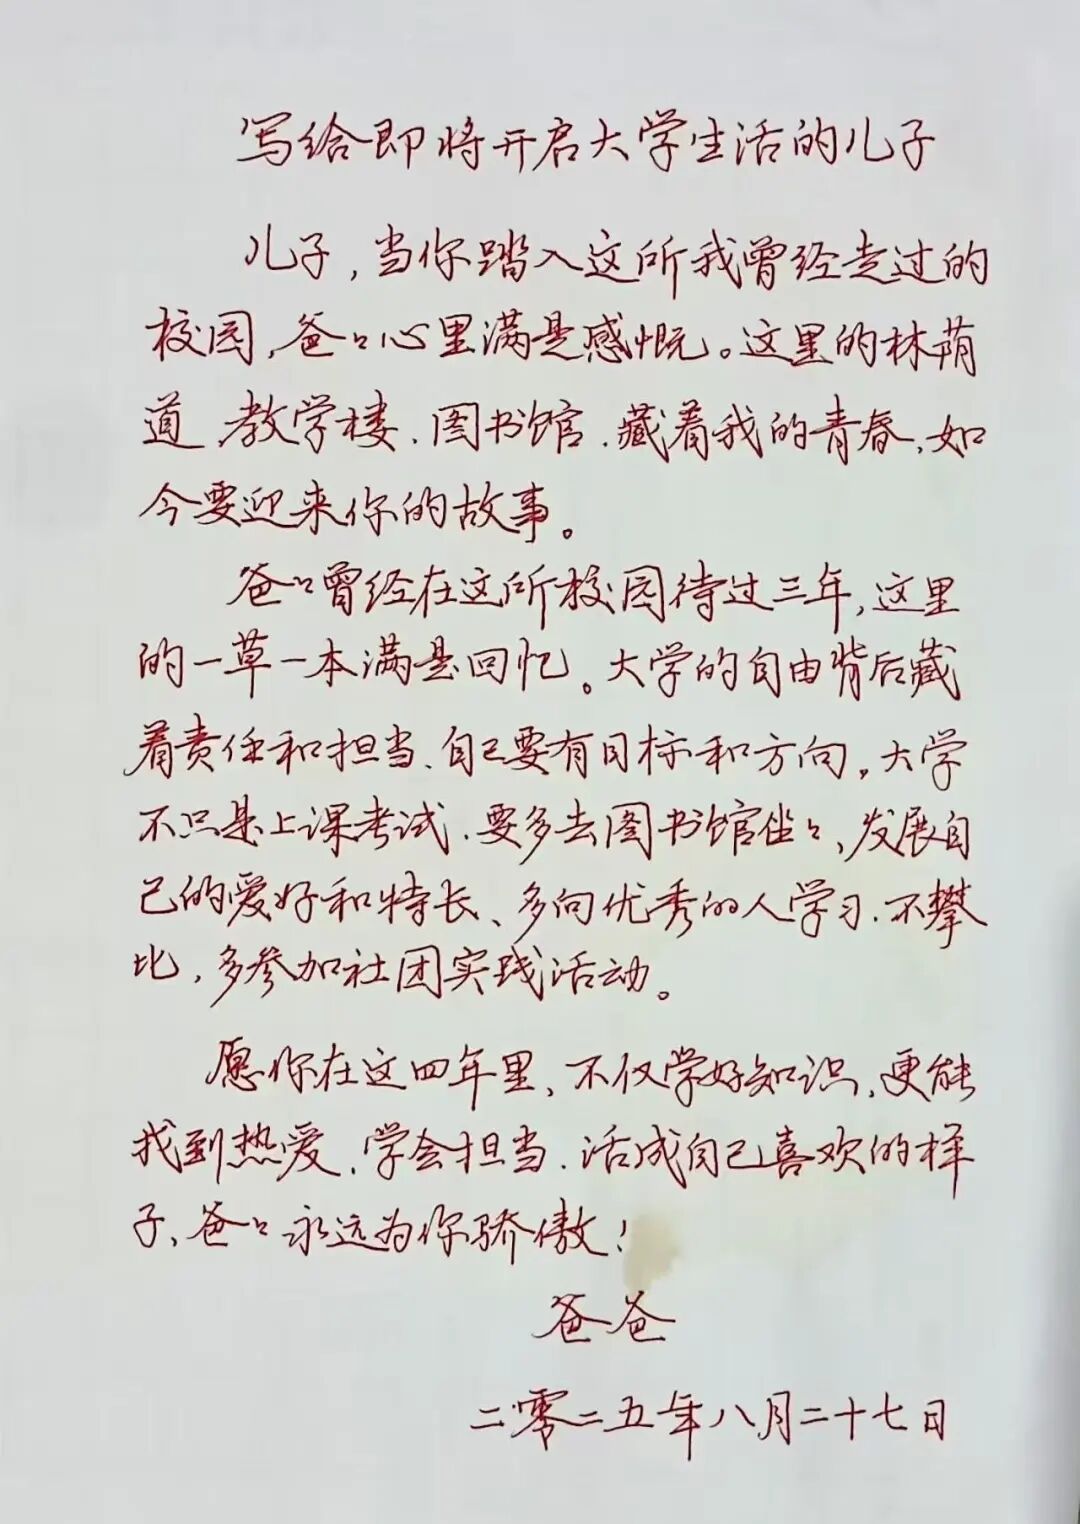 写给即将开启大学生活的儿子
儿子,当你踏入这所我曾经走过的
校园,爸々心里满是感慨。这里的林荫
道、教学楼、图书馆、藏着我的青春,如
今要迎来你的故事。
爸々曾经在这所校园待过三年,这里
的一草一本满是回忆。大学的自由背后藏
着责任和担当、自己要有目标和方向。大学
不只是上课考试、要多去图书馆坐々、发展自
己的爱好和特长、多向优秀的人学习、不攀
比,多参加社团实践活动。
愿你在这四年里、不仅学好知识,更能
找到热爱、学会担当、活成自己喜欢的样
子、爸々永远为你骄傲!
爸爸
二零二五年八月二十七日